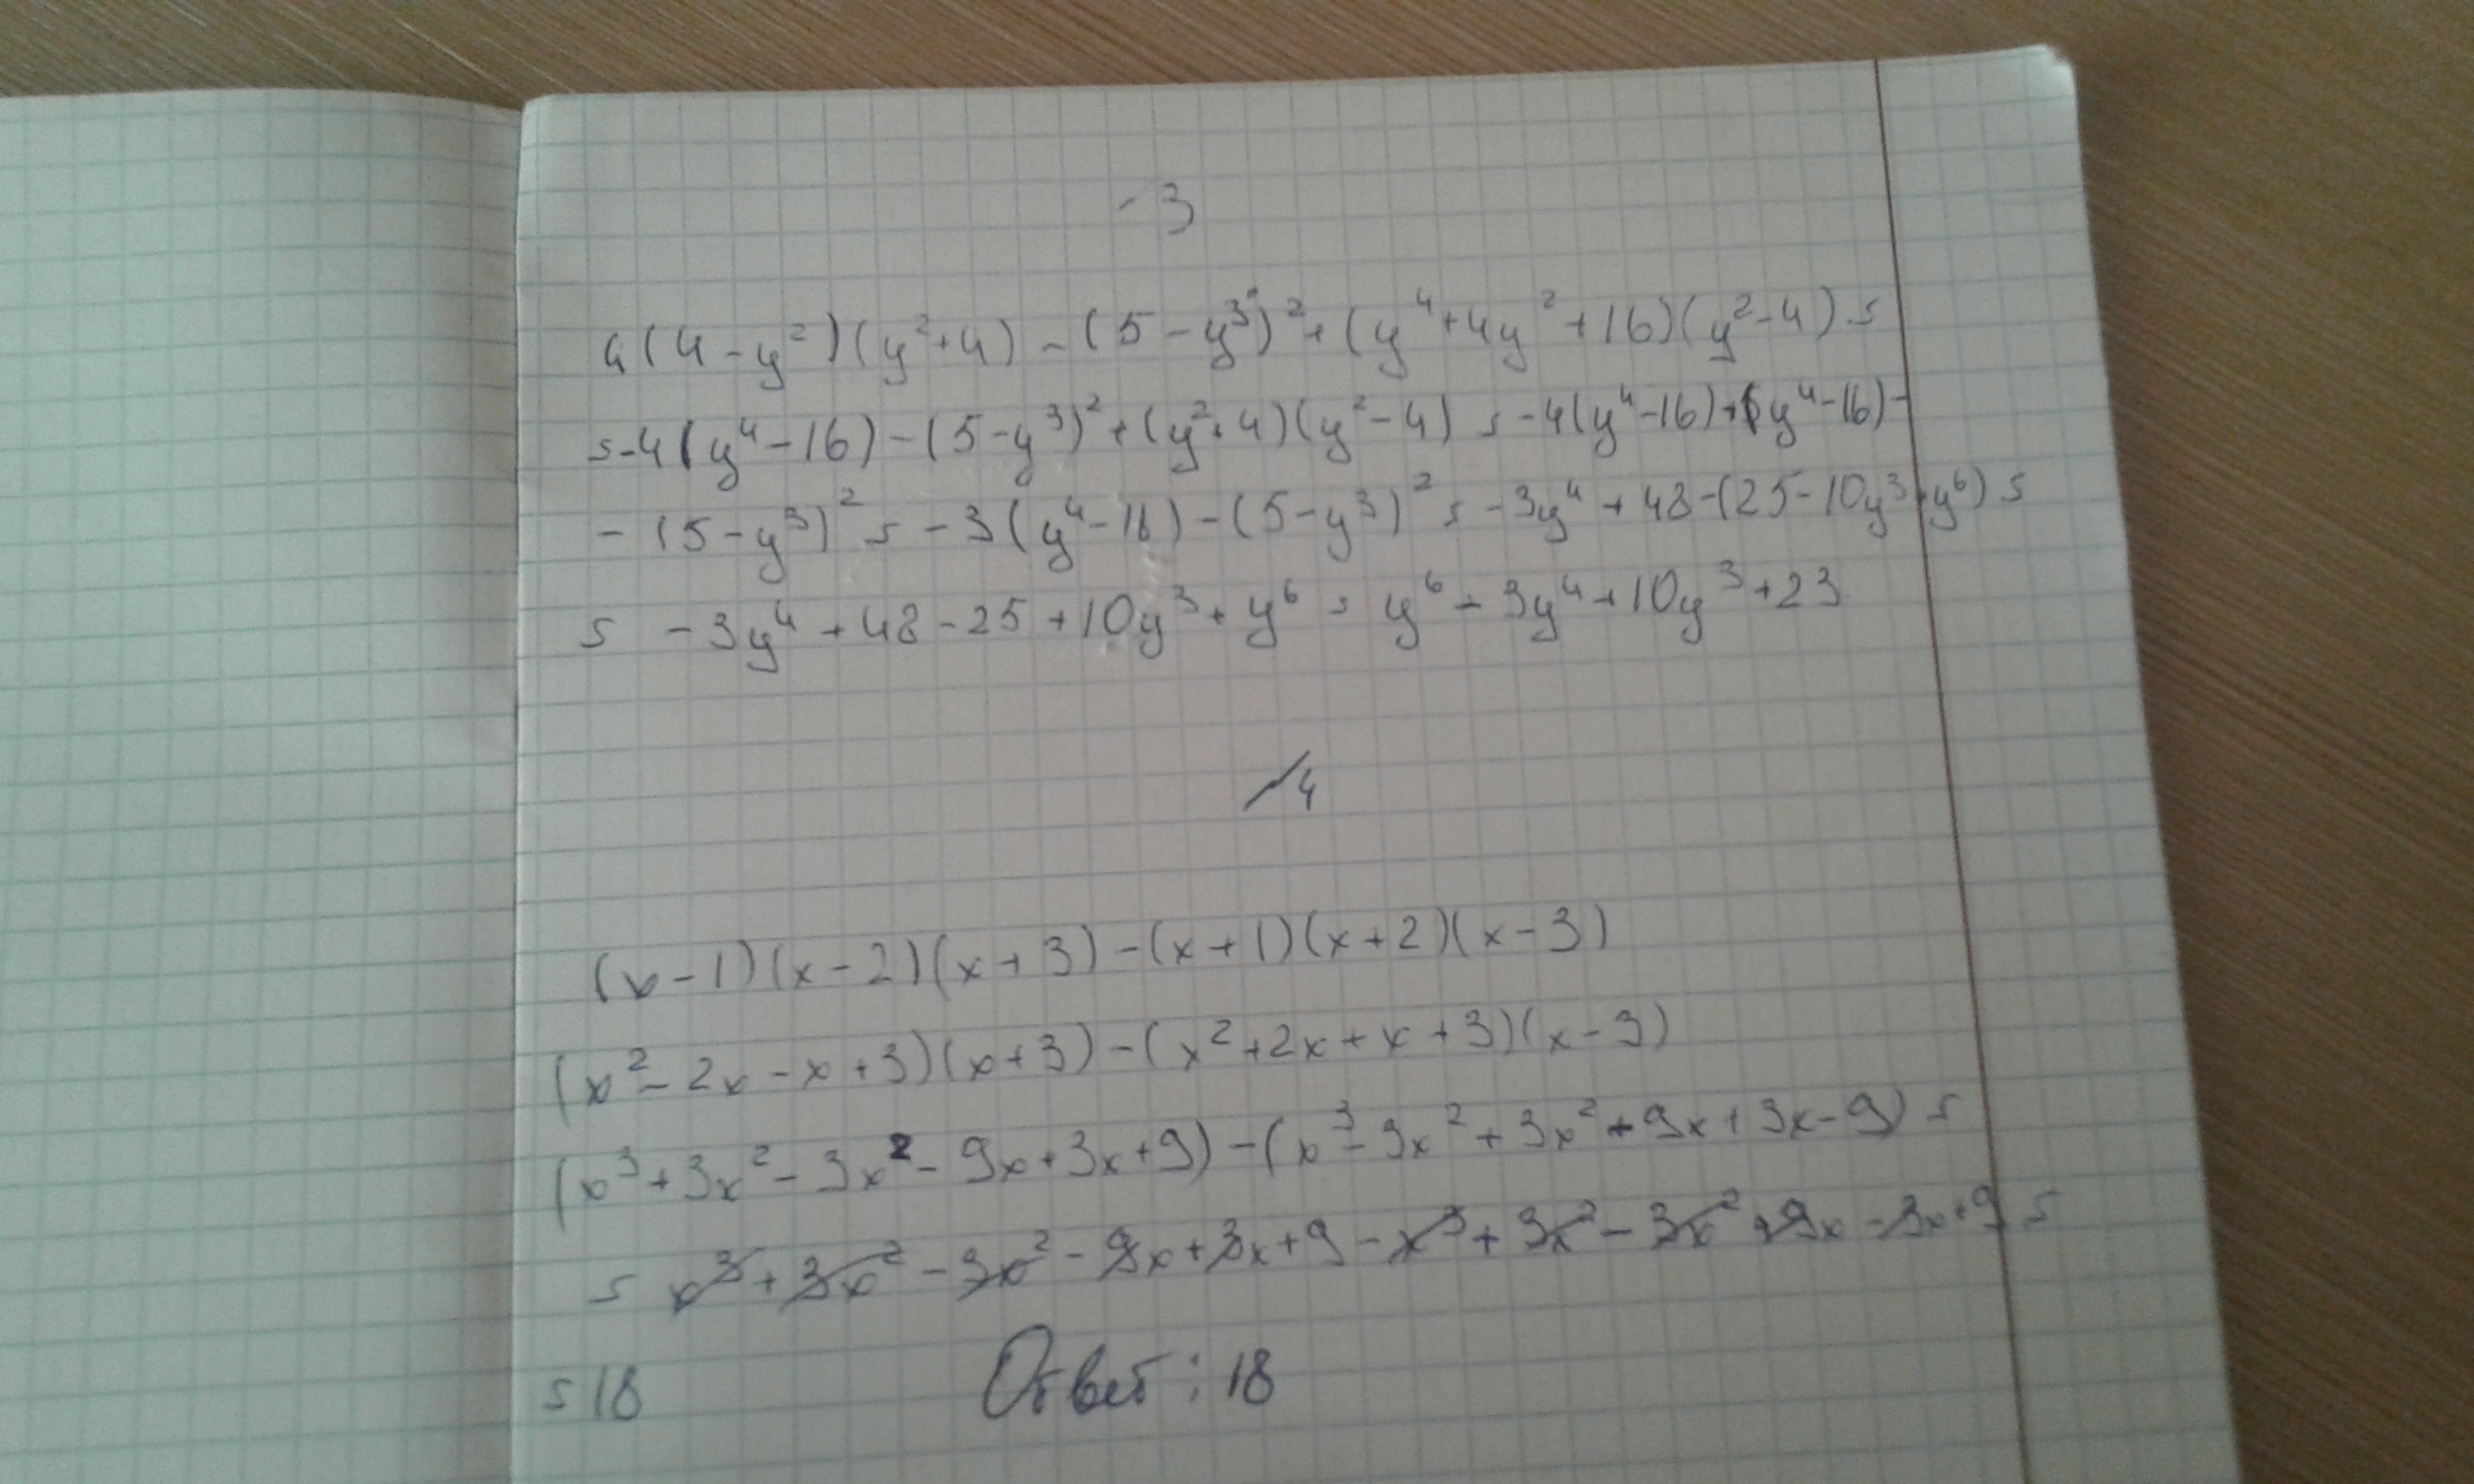 ~3
4(4-y²)(y²+4)-(5-y³)²+(y⁴+4y²+16)(y²-4)=
=-4(y⁴-16)-(5-y³)²+(y²+4)(y²-4)=-4(y⁴-16)+(y⁴-16)-
-(5-y³)²=-3(y⁴-16)-(5-y³)²=-3y⁴+48-(25-10y³+y⁶)=
=-3y⁴+48-25+10y³+y⁶=y⁶-3y⁴+10y³+23
~4
(x-1)(x-2)(x+3)-(x+1)(x+2)(x-3)
(x²-2x-x+3)(x+3)-(x²+2x+x+3)(x-3)
(x³+3x²-3x²-9x+3x+9)-(x³-3x²+3x²+9x+3x-9)=
=x³+3x²-3x²-9x+3x+9-x³+3x²-3x²+9x-3x+9=
=18 Ответ: 18